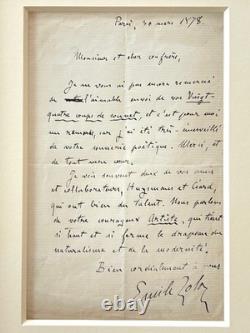 Paris, 30 mars 1878
Monsieur et cher confrère,
Je ne vous ai pas encore remercié
de l'aimable envoi de vos Vingt-
quatre coups de sonnet, et c'est pour moi
un remords, car j'ai été très-émerveillé
de votre sonnerie poétique. Merci, et
de tout mon cœur.
Je vois souvent deux de vos amis
et collaborateurs, Huysmans et Céard,
qui ont bien du talent. Nous parlons
de votre courageux Artiste, qui tient
si haut et si ferme le drapeau du
naturalisme et de la modernité.
Bien cordialement à vous
Emile Zola